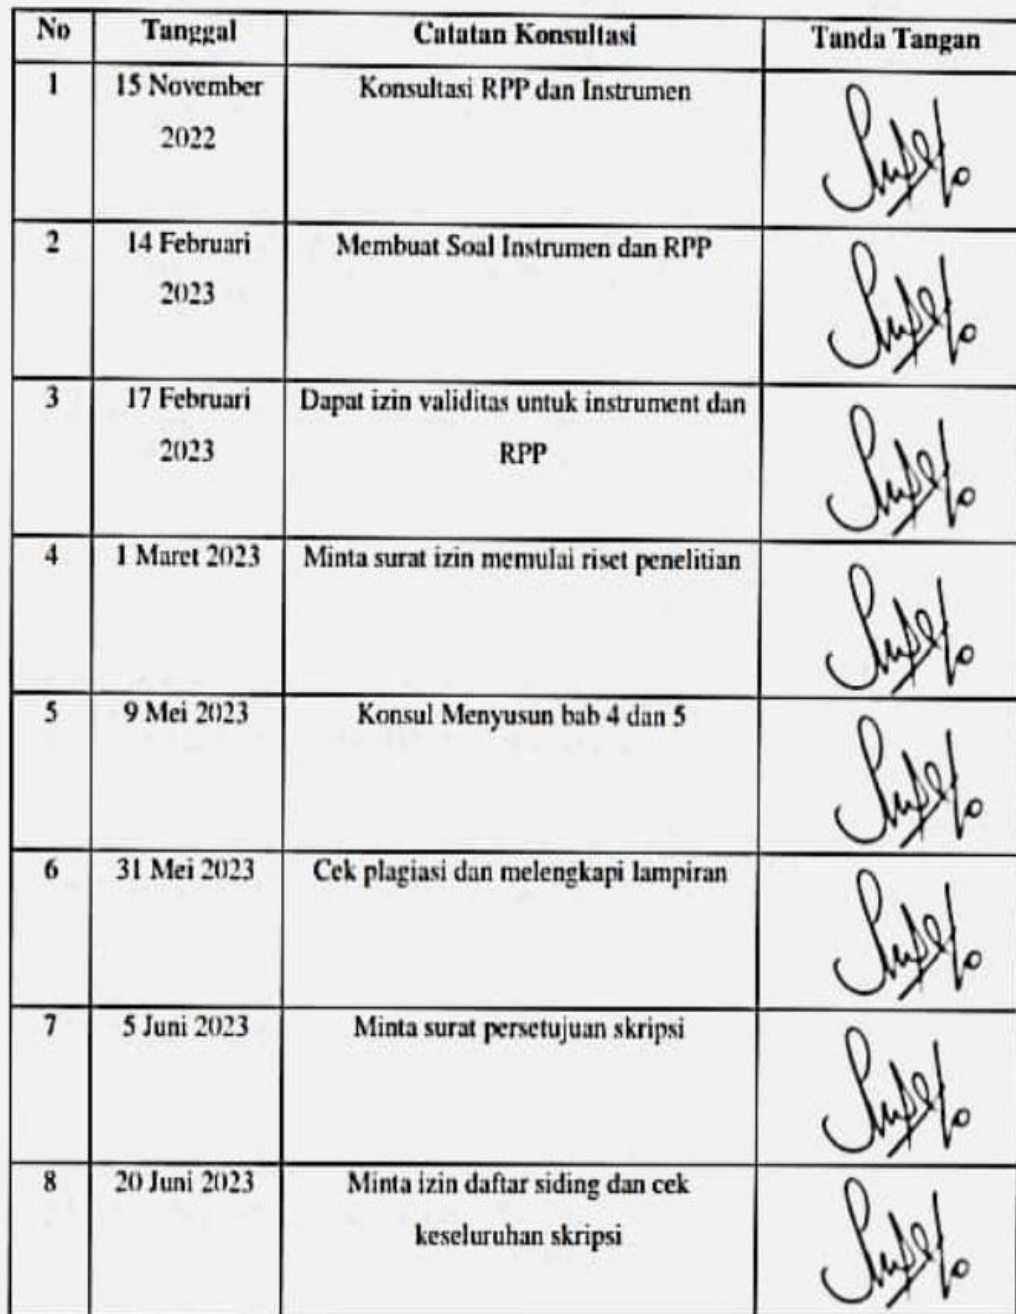 No Tanggal Catatan Konsultasi Tanda Tangan
1 15 November Konsultasi RPP dan Instrumen
2022
2 14 Februari Membuat Soal Instrumen dan RPP
2023
3 17 Februari Dapat izin validitas untuk instrument dan
2023 RPP
4 1 Maret 2023 Minta surat izin memulai riset penelitian
5 9 Mei 2023 Konsul Menyusun bab 4 dan 5
6 31 Mei 2023 Cek plagiasi dan melengkapi lampiran
7 5 Juni 2023 Minta surat persetujuan skripsi
8 20 Juni 2023 Minta izin daftar siding dan cek
keseluruhan skripsi